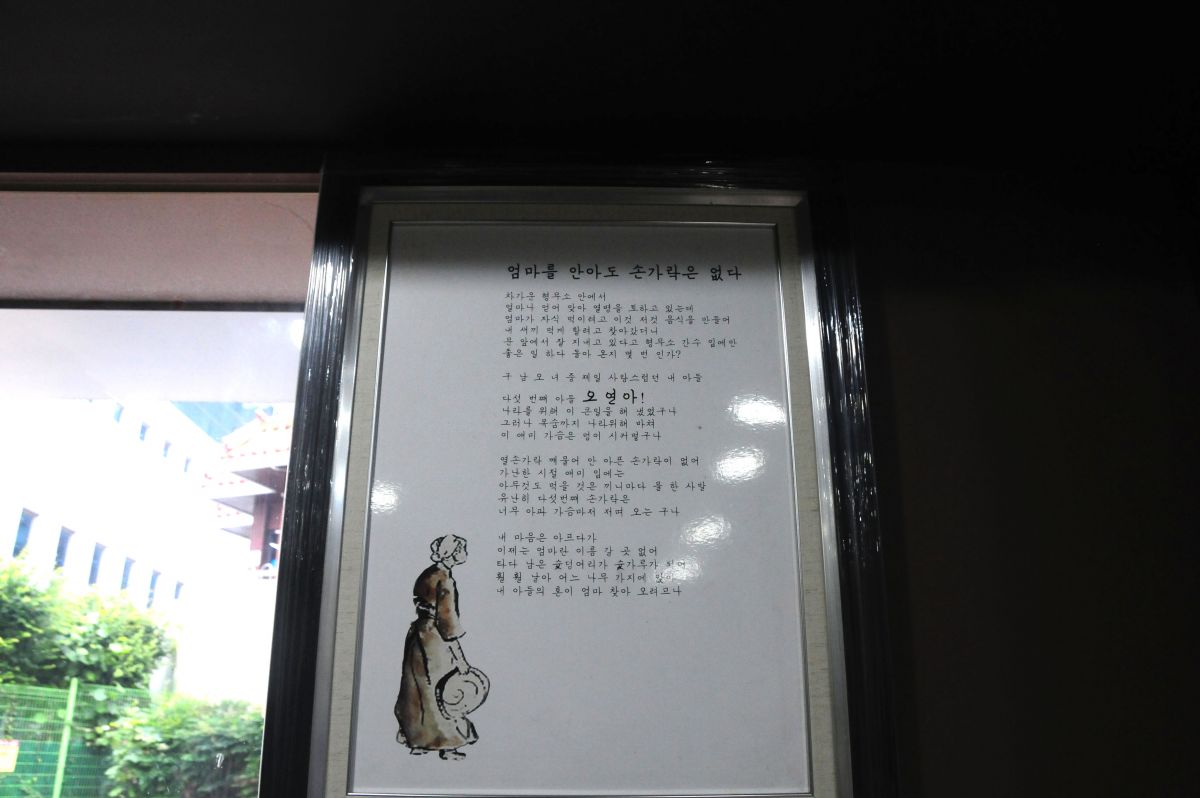 엄마를 안아도 손가락은 없다
차가운 형무소 안에서
얼마나 얻어 맞아 열병을 토하고 있는데
엄마가 자식 먹이려고 이것 저것 음식을 만들어
내 새끼 먹게 할려고 찾아갔더니
문 앞에서 잘 지내고 있다고 형무소 간수 입에만
좋은 일 하다 돌아 온지 몇 번 인가?
구 남 오 녀 중 제일 사랑스럽던 내 아들
다섯 번째 아들 오연아!
나라를 위해 이 큰일을 해 냈었구나
그러나 목숨까지 나라위해 마쳐
이 애미 가슴은 멍이 시커멓구나
열손가락 깨물어 안 아픈 손가락이 없어
가난한 시절 애미 입에는
아무것도 먹을 것은 끼니마다 물 한 사발
유난히 다섯번째 손가락은
너무 아파 가슴마저 저며 오는 구나
내 마음은 아프다가
이제는 엄마란 이름 갈 곳 없어
타다 남은 숯덩어리가 숯가루가 되어
훨 훨 날아 어느 나무 가지에
내 아들의 혼이 엄마 찾아 오려고나